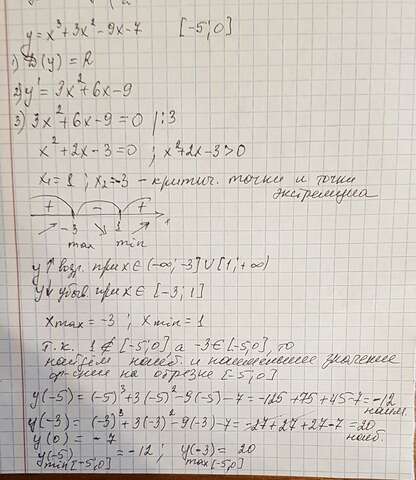 y = x³+3x²-9x-7 [-5;0]
1) D(y) = R
2) y' = 3x²+6x-9
3) 3x²+6x-9=0 |:3
x²+2x-3=0 ; x²+2x-3>0
x₁=1 ; x₂=-3 - критич. точки и точки
экстремума
+ - +
-3 1
max min
y↑ возр. при x∈(-∞;-3]∪[1;+∞)
y↓ убыв при x∈ [-3;1]
xmax = -3 ; xmin = 1
т.к. 1∉[-5;0] а -3∈[-5;0], то
найдём наиб. и наименьшее значение
ф-ции на отрезке [-5;0]
y(-5) = (-5)³+3(-5)²-9(-5)-7 = -125+75+45-7=-12
наим.
y(-3) = (-3)³+3(-3)²-9(-3)-7 = -27+27+27-7=20
наиб.
y(0) = -7
y(-5) = -12 ; y(-3) = 20
min[-5;0] max[-5;0]